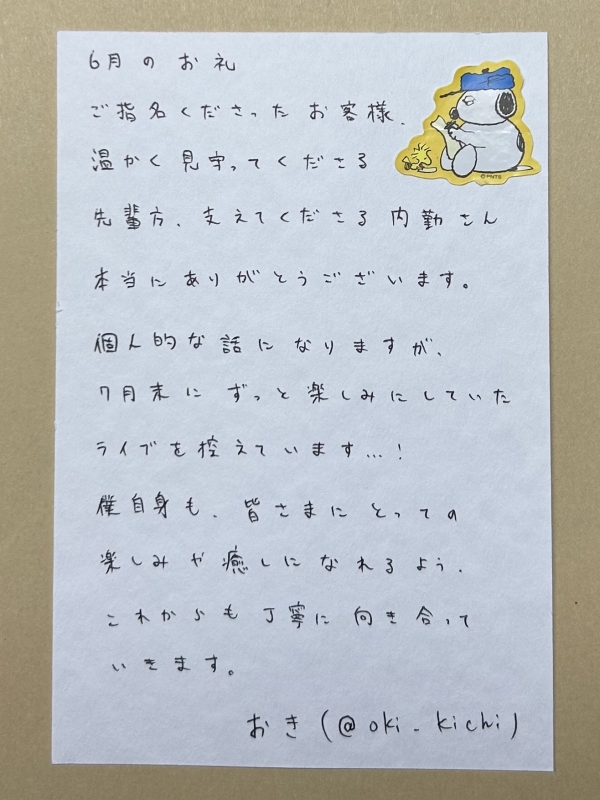 6月のお礼
ご指名くださったお客様、
温かく見守ってくださる
先輩方、支えてくださる内勤さん
本当にありがとうございます。
個人的な話になりますが、
7月末にずっと楽しみにしていた
ライブを控えています...!
僕自身も、皆さまにとっての
楽しみや癒しになれるよう、
これからも丁寧に向き合って
いきます。
おき(@oki_kichi)
©PNTS